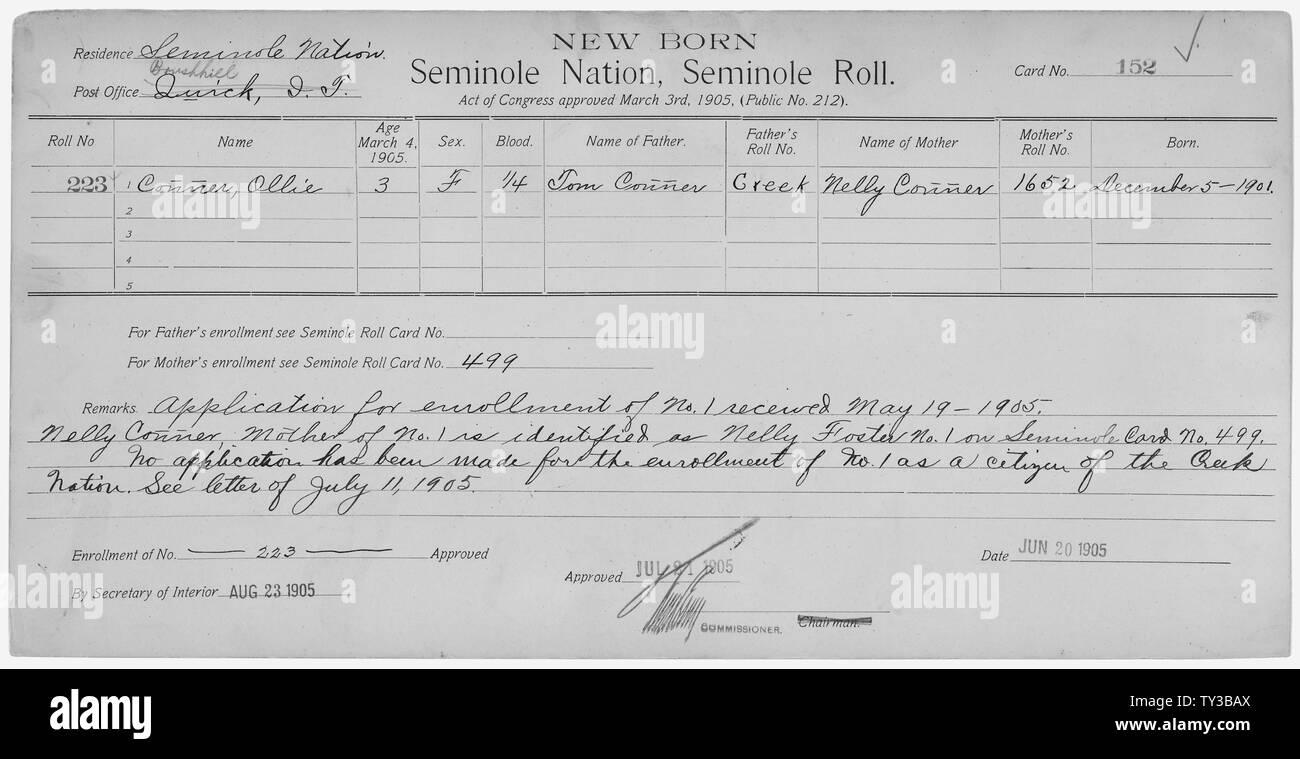 NEW BORN
Residence Seminole Nation.
Seminole Nation, Seminole Roll.
Card No. 152
Post Office Quick, I. T.
Act of Congress approved March 3rd, 1905, (Public No. 212).
Roll No Name Age March 4, 1905. Sex. Blood. Name of Father. Father's Roll No. Name of Mother Mother's Roll No. Born.
223 1 Conner, Ollie 3 F 1/4 Tom Conner Creek Nelly Conner 1652 December 5-1901.
2
3
4
5
For Father's enrollment see Seminole Roll Card No.
For Mother's enrollment see Seminole Roll Card No. 499
Remarks. Application for enrollment of No. 1 received May 19-1905.
Nelly Conner, Mother of No. 1 is identified as Nelly Foster No. 1 on Seminole Card No. 499.
No application has been made for the enrollment of No. 1 as a citizen of the Creek
Nation. See letter of July 11, 1905.
Enrollment of No. 223 Approved
By Secretary of Interior AUG 23 1905
Approved JUL 21 1905
COMMISSIONER. Chairman.
Date JUN 20 1905
a alamy
alamy
Image ID: TY3BAX
www.alamy.com